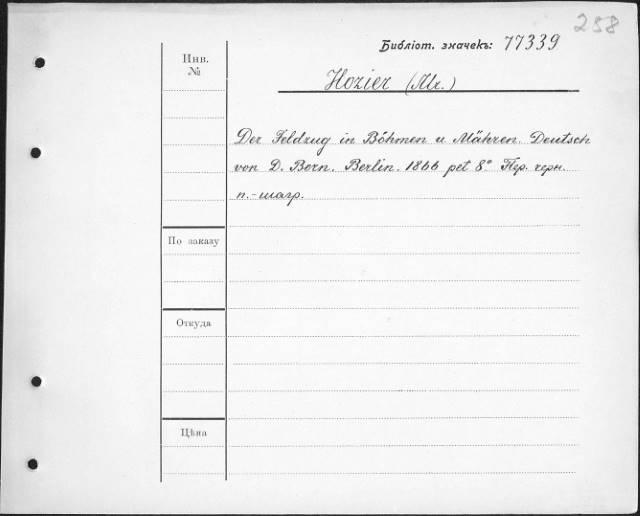 258
Библіот. значекъ: 77339
Инв.
№
Hozier (Mr.)
Der Feldzug in Böhmen u Mähren. Deutsch
von D. Born. Berlin. 1866 pet 8° Пер. черн.
п.-шагр.
По заказу
Откуда
Цѣна